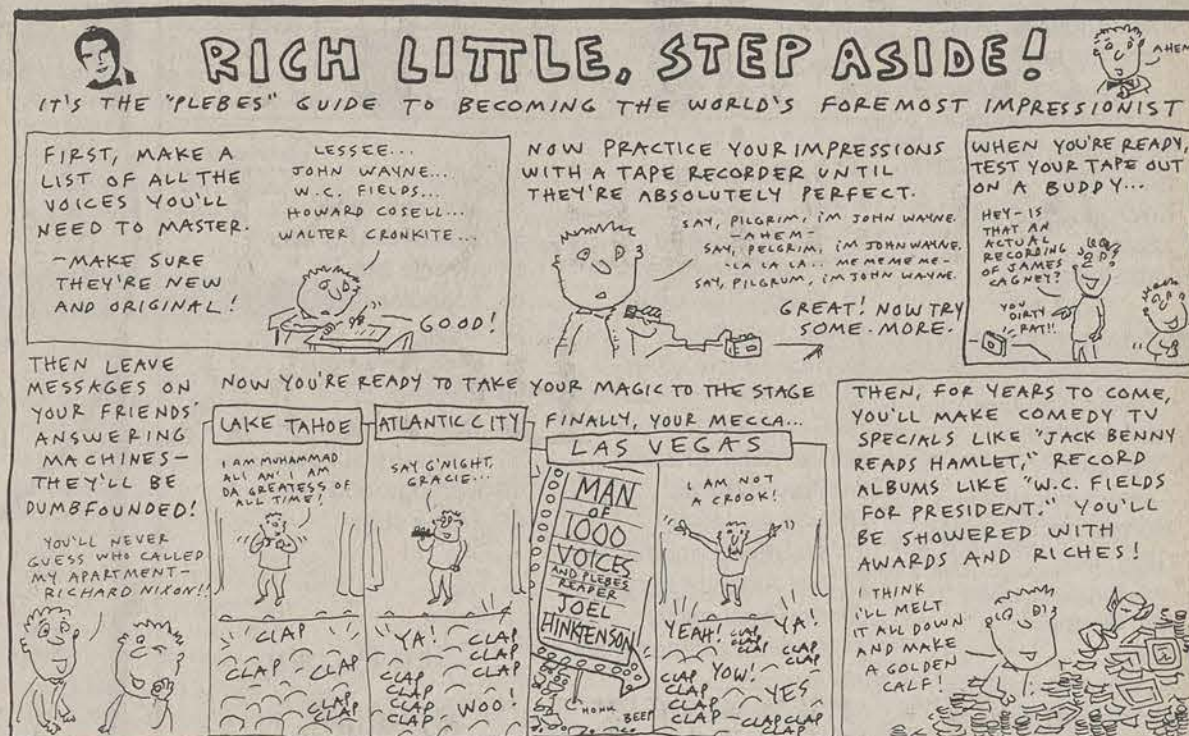 RICH LITTLE, STEP ASIDE!
AHEM
IT'S THE "PLEBES" GUIDE TO BECOMING THE WORLD'S FOREMOST IMPRESSIONIST
FIRST, MAKE A
LIST OF ALL THE
VOICES YOU'LL
NEED TO MASTER.
-MAKE SURE
THEY'RE NEW
AND ORIGINAL!
LESSEE...
JOHN WAYNE...
W.C. FIELDS...
HOWARD COSELL...
WALTER CRONKITE...
GOOD!
NOW PRACTICE YOUR IMPRESSIONS
WITH A TAPE RECORDER UNTIL
THEY'RE ABSOLUTELY PERFECT.
SAY, PILGRIM, I'M JOHN WAYNE.
-AHEM-
SAY, PELGRIM, I'M JOHN WAYNE.
-LA LA LA... ME ME ME ME-
SAY, PILGRUM, I'M JOHN WAYNE.
GREAT! NOW TRY
SOME MORE.
WHEN YOU'RE READY,
TEST YOUR TAPE OUT
ON A BUDDY...
HEY- IS
THAT AN
ACTUAL
RECORDING
OF JAMES
CAGNEY?
YOU
DIRTY
RAT!!
THEN LEAVE
MESSAGES ON
YOUR FRIENDS'
ANSWERING
MACHINES-
THEY'LL BE
DUMBFOUNDED!
YOU'LL NEVER
GUESS WHO CALLED
MY APARTMENT-
RICHARD NIXON!!
NOW YOU'RE READY TO TAKE YOUR MAGIC TO THE STAGE
LAKE TAHOE
I AM MUHAMMAD
ALI AN' I AM
DA GREATESS OF
ALL TIME!
CLAP
CLAP - CLAP
CLAP
CLAP
ATLANTIC CITY
SAY G'NIGHT,
GRACIE...
YA!
CLAP
CLAP
CLAP
CLAP
CLAP
CLAP
WOO!
FINALLY, YOUR MECCA...
LAS VEGAS
MAN
OF
1000
VOICES
AND PLEBES
READER
JOEL
HINKTENSON
HONK
BEEP
I AM NOT
A CROOK!
YEAH!
CLAP
CLAP
YA!
CLAP
CLAP
CLAP
CLAP
CLAP
YOW!
YES
CLAP CLAP
CLAP
THEN, FOR YEARS TO COME,
YOU'LL MAKE COMEDY TV
SPECIALS LIKE "JACK BENNY
READS HAMLET," RECORD
ALBUMS LIKE "W.C. FIELDS
FOR PRESIDENT." YOU'LL
BE SHOWERED WITH
AWARDS AND RICHES!
I THINK
I'LL MELT
IT ALL DOWN
AND MAKE
A GOLDEN
CALF!